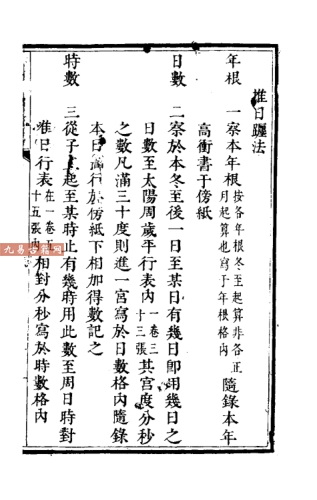 推日躔法
年根　一察本年根按各年根冬至起算非各正月起算也寫于年根格内隨錄本年
高衝書于傍紙
日數　二察於本冬至後一日至某日有幾日卽用幾日之
日數至太陽周歲平行表内一卷三十三張其宮度分秒
之數凡滿三十度則進一宮寫於日數格内隨錄
本日高行於傍紙下相加得數記之
時數　三從子正起至某時止有幾時用此數至周日時對
准日行表在一卷十五張内相對分秒寫於時數格内
九易古籍网